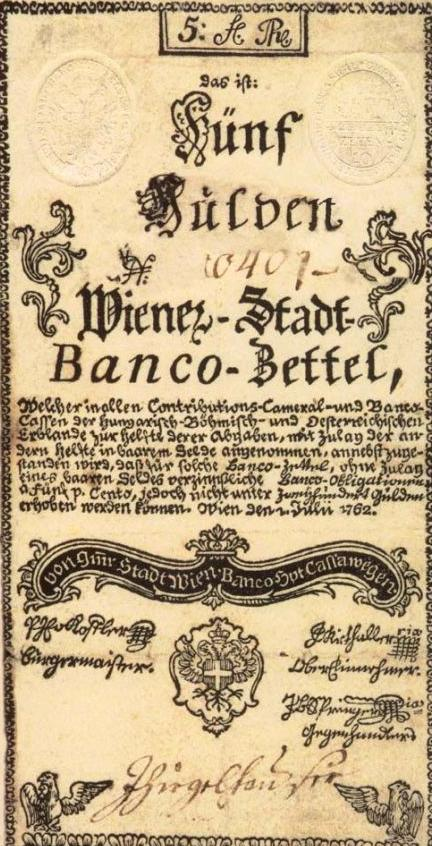 5: fl. Rh.
das ist:
Fünf
Gulden
N. 10401
Wiener-Stadt-
Banco-Zettel,
Welcher in allen Contributions-Cameral- und Banco-
Cassen der Hungarisch-Böhmisch- und Oesterreichischen
Erblande zur Helfte derer Abgaben, mit Zulag der an-
dern Helfte in baarem Gelde angenommen, annebst zuge-
standen wird, daß für solche Banco-Zettel, ohne Zulag
eines baaren Geldes verzinsliche Banco-Obligationen
à Fünf p. Cento, jedoch nicht unter Zweyhundert Gulden
erhoben werden können. Wien den 1. Julii 1762.
Von Stadt Wien Banco Hbt Cassa wegen
Burgermaister.
OberEinnehmer.
Gegenhandler